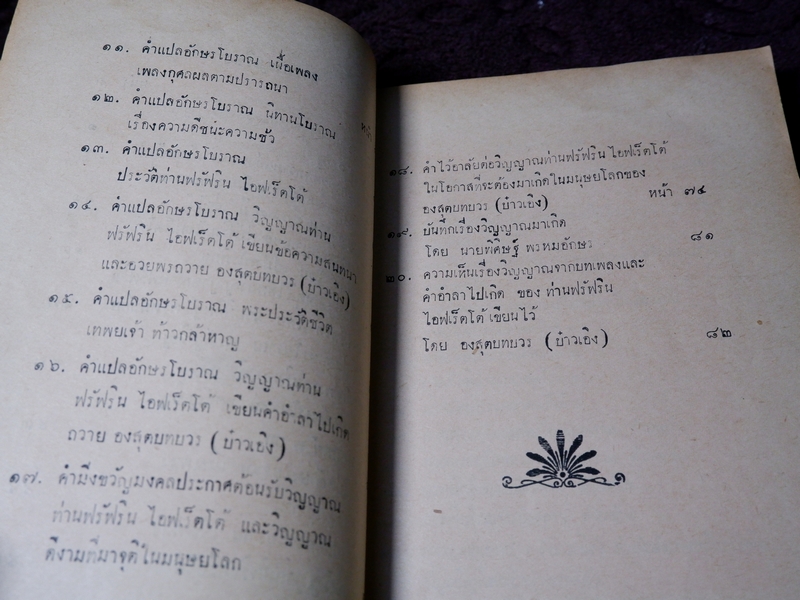 ๑๑. คำแปลอักษรโบราณ เนื้อเพลง
เพลงกุศลผลตามปรารถนา
๑๒. คำแปลอักษรโบราณ นิทานโบราณ
เรื่องความดีชนะความชั่ว
๑๓. คำแปลอักษรโบราณ
ประวัติท่านฟรัฟริน ไอฟเร็ตโต้
๑๔. คำแปลอักษรโบราณ วิญญาณท่าน
ฟรัฟริน ไอฟเร็ตโต้ เขียนข้อความสนทนา
และอวยพรถวาย องสุตบทบวร (บ๋าวเอิง)
๑๕. คำแปลอักษรโบราณ พระประวัติชีวิต
เทพยเจ้า ท้าวกล้าหาญ
๑๖. คำแปลอักษรโบราณ วิญญาณท่าน
ฟรัฟริน ไอฟเร็ตโต้ เขียนคำอำลาไปเกิด
ถวาย องสุตบทบวร (บ๋าวเอิง)
๑๗. คำมิ่งขวัญมงคลประกาศต้อนรับวิญญาณ
ท่านฟรัฟริน ไอฟเร็ตโต้ และวิญญาณ
ดีงามที่มาจุติในมนุษยโลก
๑๘. คำไว้อาลัยต่อวิญญาณท่านฟรัฟริน ไอฟเร็ตโต้
ในโอกาสที่จะต้องมาเกิดในมนุษยโลกของ
องสุตบทบวร (บ๋าวเอิง) หน้า ๗๔
๑๙. บันทึกเรื่องวิญญาณมาเกิด
โดย นายพิศิษฐ์ พรหมอักษร ๘๑
๒๐. ความเห็นเรื่องวิญญาณจากบทเพลงและ
คำอำลาไปเกิด ของ ท่านฟรัฟริน
ไอฟเร็ตโต้ เขียนไว้
โดย องสุตบทบวร (บ๋าวเอิง) ๘๒